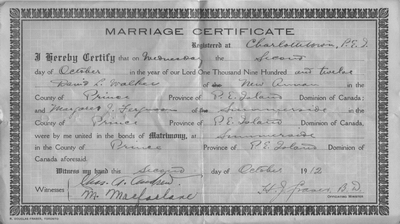 MARRIAGE CERTIFICATE
Registered at Charlottetown, P.E.I.
I Hereby Certify that on Wednesday the Second
day of October in the year of our Lord One Thousand Nine Hundred and twelve
David L. Walker of New Annan in the
County of Prince Province of P.E. Island Dominion of Canada:
and Margaret J. Ferguson of Summerside in the
County of Prince Province of P.E. Island Dominion of Canada:
were by me united in the bonds of Matrimony, at Summerside
in the County of Prince Province of P.E. Island Dominion of
Canada aforesaid.
Witness my hand this Second day of October 1912
Witnesses
M. Macfarlane H. J. B.D.
Officiating Minister